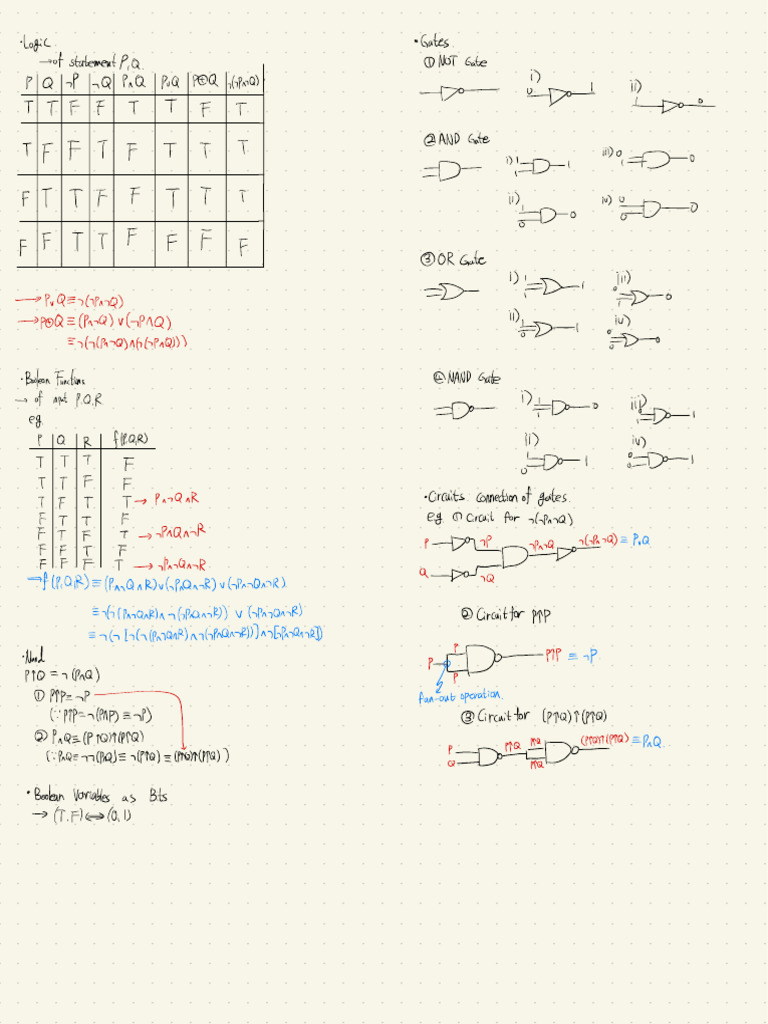 ·Logic
→of statement P,Q.
P Q ¬P ¬Q P∧Q P∨Q P⊕Q ¬(¬P∧¬Q)
T T F F T T F T
T F F T F T T T
F T T F F T T T
F F T T F F F F
→P∨Q≡¬(¬P∧¬Q)
→P⊕Q≡(P∧¬Q)∨(¬P∧Q)
≡¬(¬(P∧¬Q)∧(¬(¬P∧Q)))
·Boolean Functions
→ of input P.Q.R
eg.
P Q R f(P,Q,R)
T T T F
T T F F
T F T T → P∧¬Q∧R
F T T F
F T F T → ¬P∧Q∧¬R
F F F F
F F F T → ¬P∧¬Q∧¬R
→f(P,Q,R)≡(P∧¬Q∧R)∨(¬P∧Q∧¬R)∨(¬P∧¬Q∧¬R)
≡¬(¬(P∧¬Q∧R)∧¬(¬P∧Q∧¬R)) ∨ (¬P∧¬Q∧¬R)
≡¬(¬[¬(¬(P∧¬Q∧R)∧¬(¬P∧Q∧¬R))]∧¬[¬P∧¬Q∧¬R])
·Nand
P↑Q=¬(P∧Q)
① P↑P≡¬P
(∵P↑P=¬(P∧P)≡¬P)
② P∧Q≡(P↑Q)↑(P↑Q)
(∵P∧Q≡¬¬(P∧Q)≡¬(P↑Q)≡(P↑Q)↑(P↑Q))
·Boolean Variables as Bits
→ (T.F)↔(0,1)
·Gates
① NOT Gate
i) 0 1
ii) 1 0
② AND Gate
i) 1 1 1
iii) 0 1 0
ii) 1 0 0
iv) 0 0 0
③ OR Gate
i) 1 1 1
iii) 0 1 0
ii) 1 0 1
iv) 0 0 0
④ NAND Gate
i) 1 1 0
iii) 0 1 1
ii) 1 0 1
iv) 0 0 1
·Circuits connection of gates.
eg. ① Circuit for ¬(¬P∧¬Q)
P ¬P ¬P∧¬Q ¬(¬P∧¬Q) ≡ P∨Q
Q ¬Q
② Circuit for P↑P
P P P P↑P ≡ ¬P
fan-out operation.
③ Circuit for (P↑Q)↑(P↑Q)
P Q P↑Q P↑Q P↑Q (P↑Q)↑(P↑Q) ≡P∧Q.